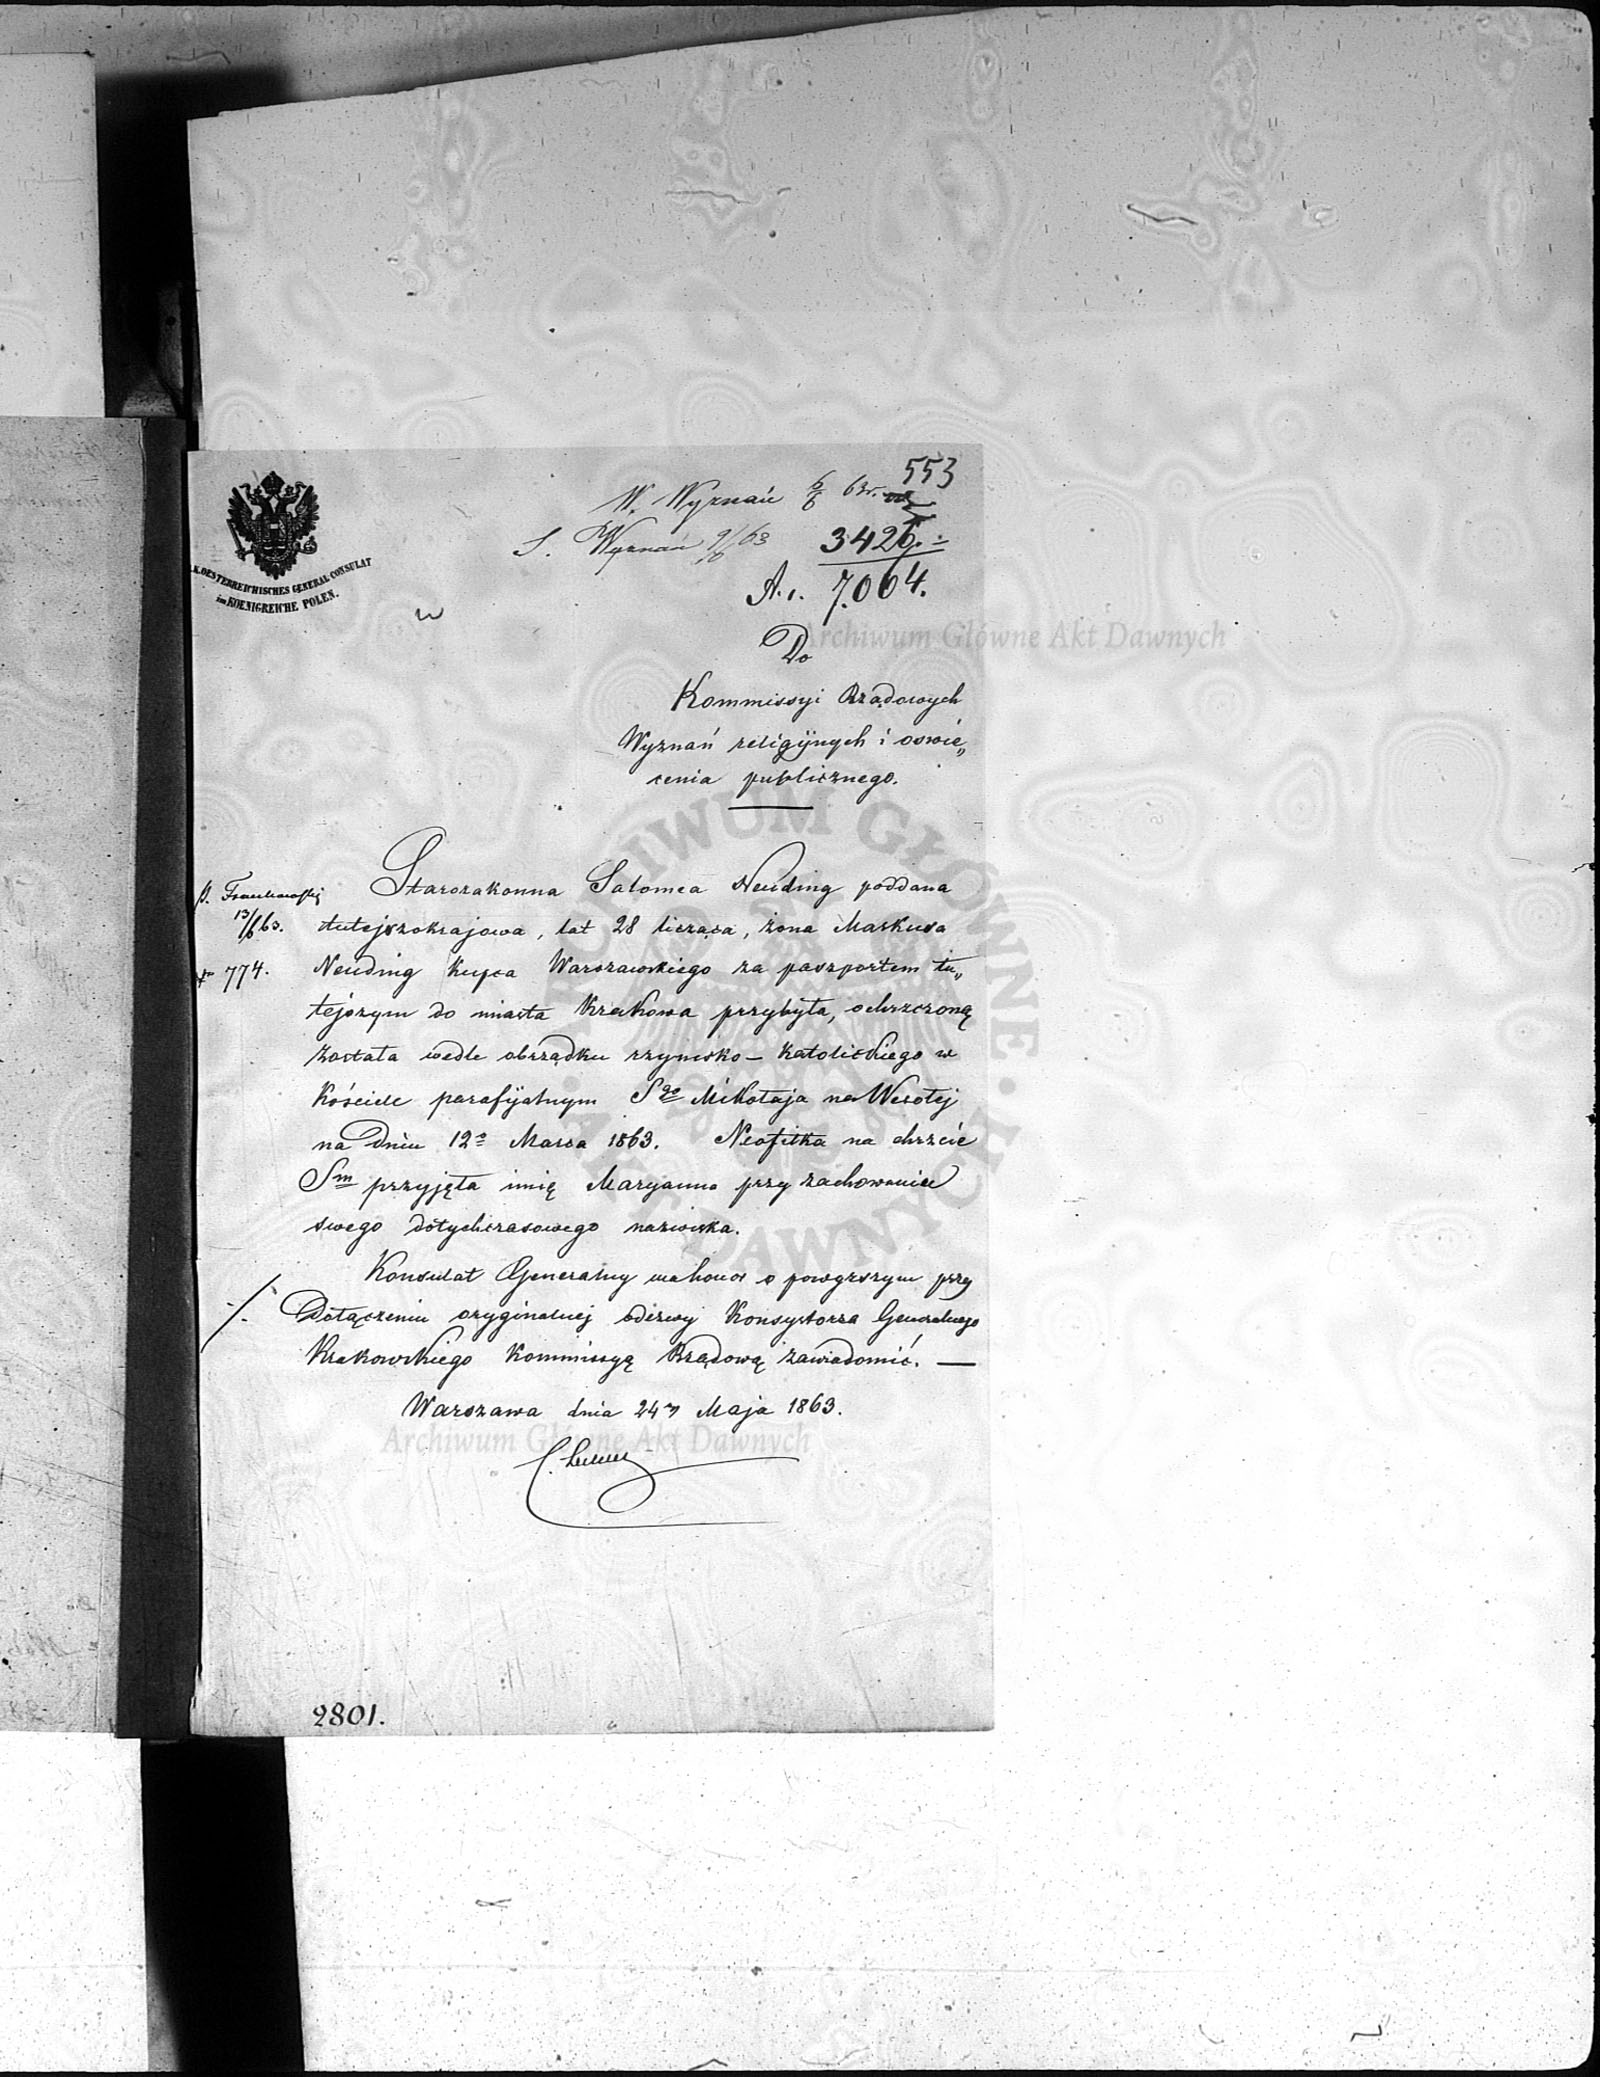 553
W. Wyznań 6/6 63r.
S. Wyznań 9/6 63 3426.
A.1. 7.064.
K. OESTERREICHISCHES GENERAL CONSULAT
im KOENIGREICHE POLEN.
Do
Kommissyi Rządowych
Wyznań religijnych i oświe„
cenia publicznego.
p. Frankowski
13/6 63.
774.
Starozakonna Salomea Neuding poddana
tutejszokrajowa, lat 28 licząca, żona Markusa
Neuding Kupca Warszawskiego za paszportem tu„
tejszym do miasta Krakowa przybyła, ochrzczoną
została wedle obrządku rzymsko-katolickiego w
Kościele parafijalnym Sgo Mikołaja na Wesołej
na dniu 12o Marca 1863. Neofitka na chrzcie
Sm przyjęła imię Maryanna przy zachowaniu
swego dotychczasowego nazwiska.
Konsulat Generalny ma honor o powyższym przy
./. Dołączeniu oryginalnej odezwy Konsystorza Generalnego
Krakowskiego Kommissyą Rządową zawiadomić. —
Warszawa dnia 24 Maja 1863.
2801.
Archiwum Główne Akt Dawnych
ARCHIWUM GŁÓWNE AKT DAWNYCH
Archiwum Główne Akt Dawnych